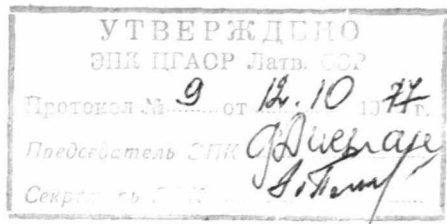 УТВЕРЖДЕНО
ЭПК ЦГАОР Латв. ССР
Протокол № 9 от 12.10 1977 г.
Председатель ЭПК
Секретарь ЭПК